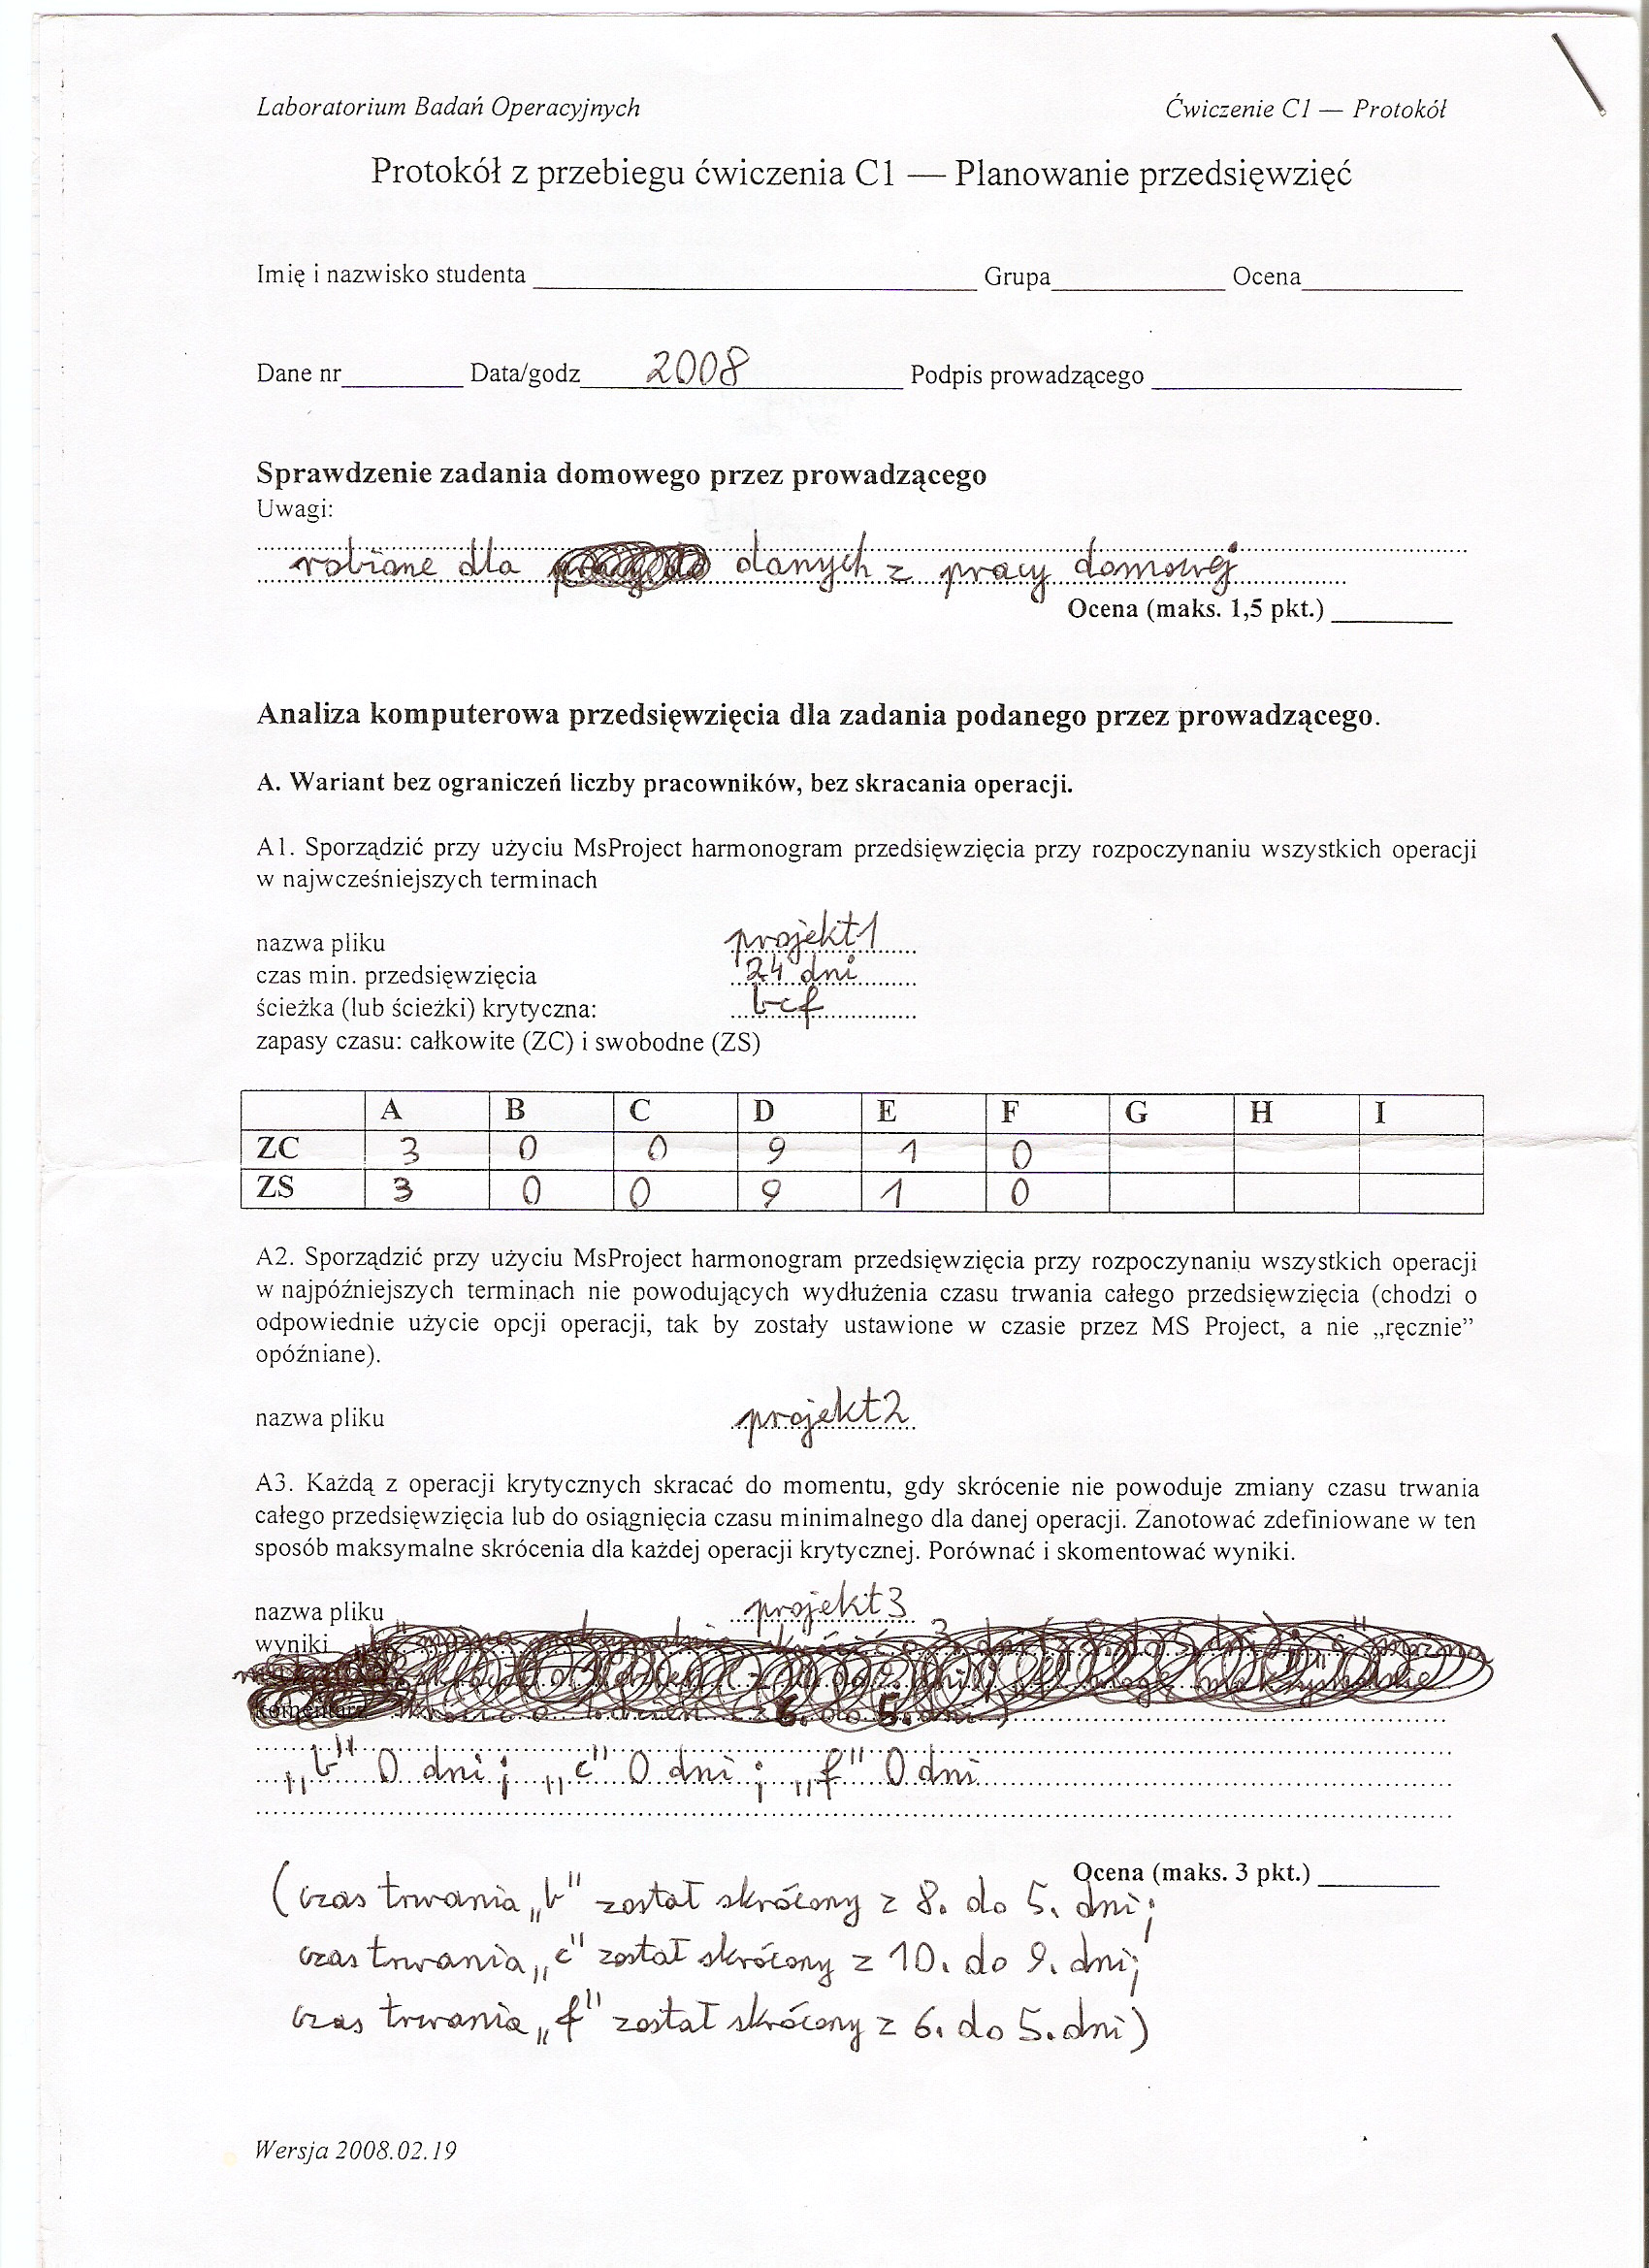 Laboratorium Badań Operacyjnych Ćwiczenie C1 — Protokół
Protokół z przebiegu ćwiczenia C1 — Planowanie przedsięwzięć
Imię i nazwisko studenta Grupa Ocena
Dane nr Data/godz 2008 Podpis prowadzącego
Sprawdzenie zadania domowego przez prowadzącego
Uwagi:
robione dla danych z pracy domowej
Ocena (maks. 1,5 pkt.)
Analiza komputerowa przedsięwzięcia dla zadania podanego przez prowadzącego.
A. Wariant bez ograniczeń liczby pracowników, bez skracania operacji.
A1. Sporządzić przy użyciu MsProject harmonogram przedsięwzięcia przy rozpoczynaniu wszystkich operacji
w najwcześniejszych terminach
nazwa pliku projekt1
czas min. przedsięwzięcia 24 dni
ścieżka (lub ścieżki) krytyczna: bcf
zapasy czasu: całkowite (ZC) i swobodne (ZS)
A B C D E F G H I
ZC 3 0 0 9 1 0
ZS 3 0 0 9 1 0
A2. Sporządzić przy użyciu MsProject harmonogram przedsięwzięcia przy rozpoczynaniu wszystkich operacji
w najpóźniejszych terminach nie powodujących wydłużenia czasu trwania całego przedsięwzięcia (chodzi o
odpowiednie użycie opcji operacji, tak by zostały ustawione w czasie przez MS Project, a nie „ręcznie”
opóźniane).
nazwa pliku projekt2
A3. Każdą z operacji krytycznych skracać do momentu, gdy skrócenie nie powoduje zmiany czasu trwania
całego przedsięwzięcia lub do osiągnięcia czasu minimalnego dla danej operacji. Zanotować zdefiniowane w ten
sposób maksymalne skrócenia dla każdej operacji krytycznej. Porównać i skomentować wyniki.
nazwa pliku projekt3
wyniki
komentarz
„b” 0 dni; „c” 0 dni; „f” 0 dni
Ocena (maks. 3 pkt.)
(czas trwania „b” został skrócony z 8. do 5. dni;
czas trwania „c” został skrócony z 10. do 9. dni;
czas trwania „f” został skrócony z 6. do 5. dni)
Wersja 2008.02.19